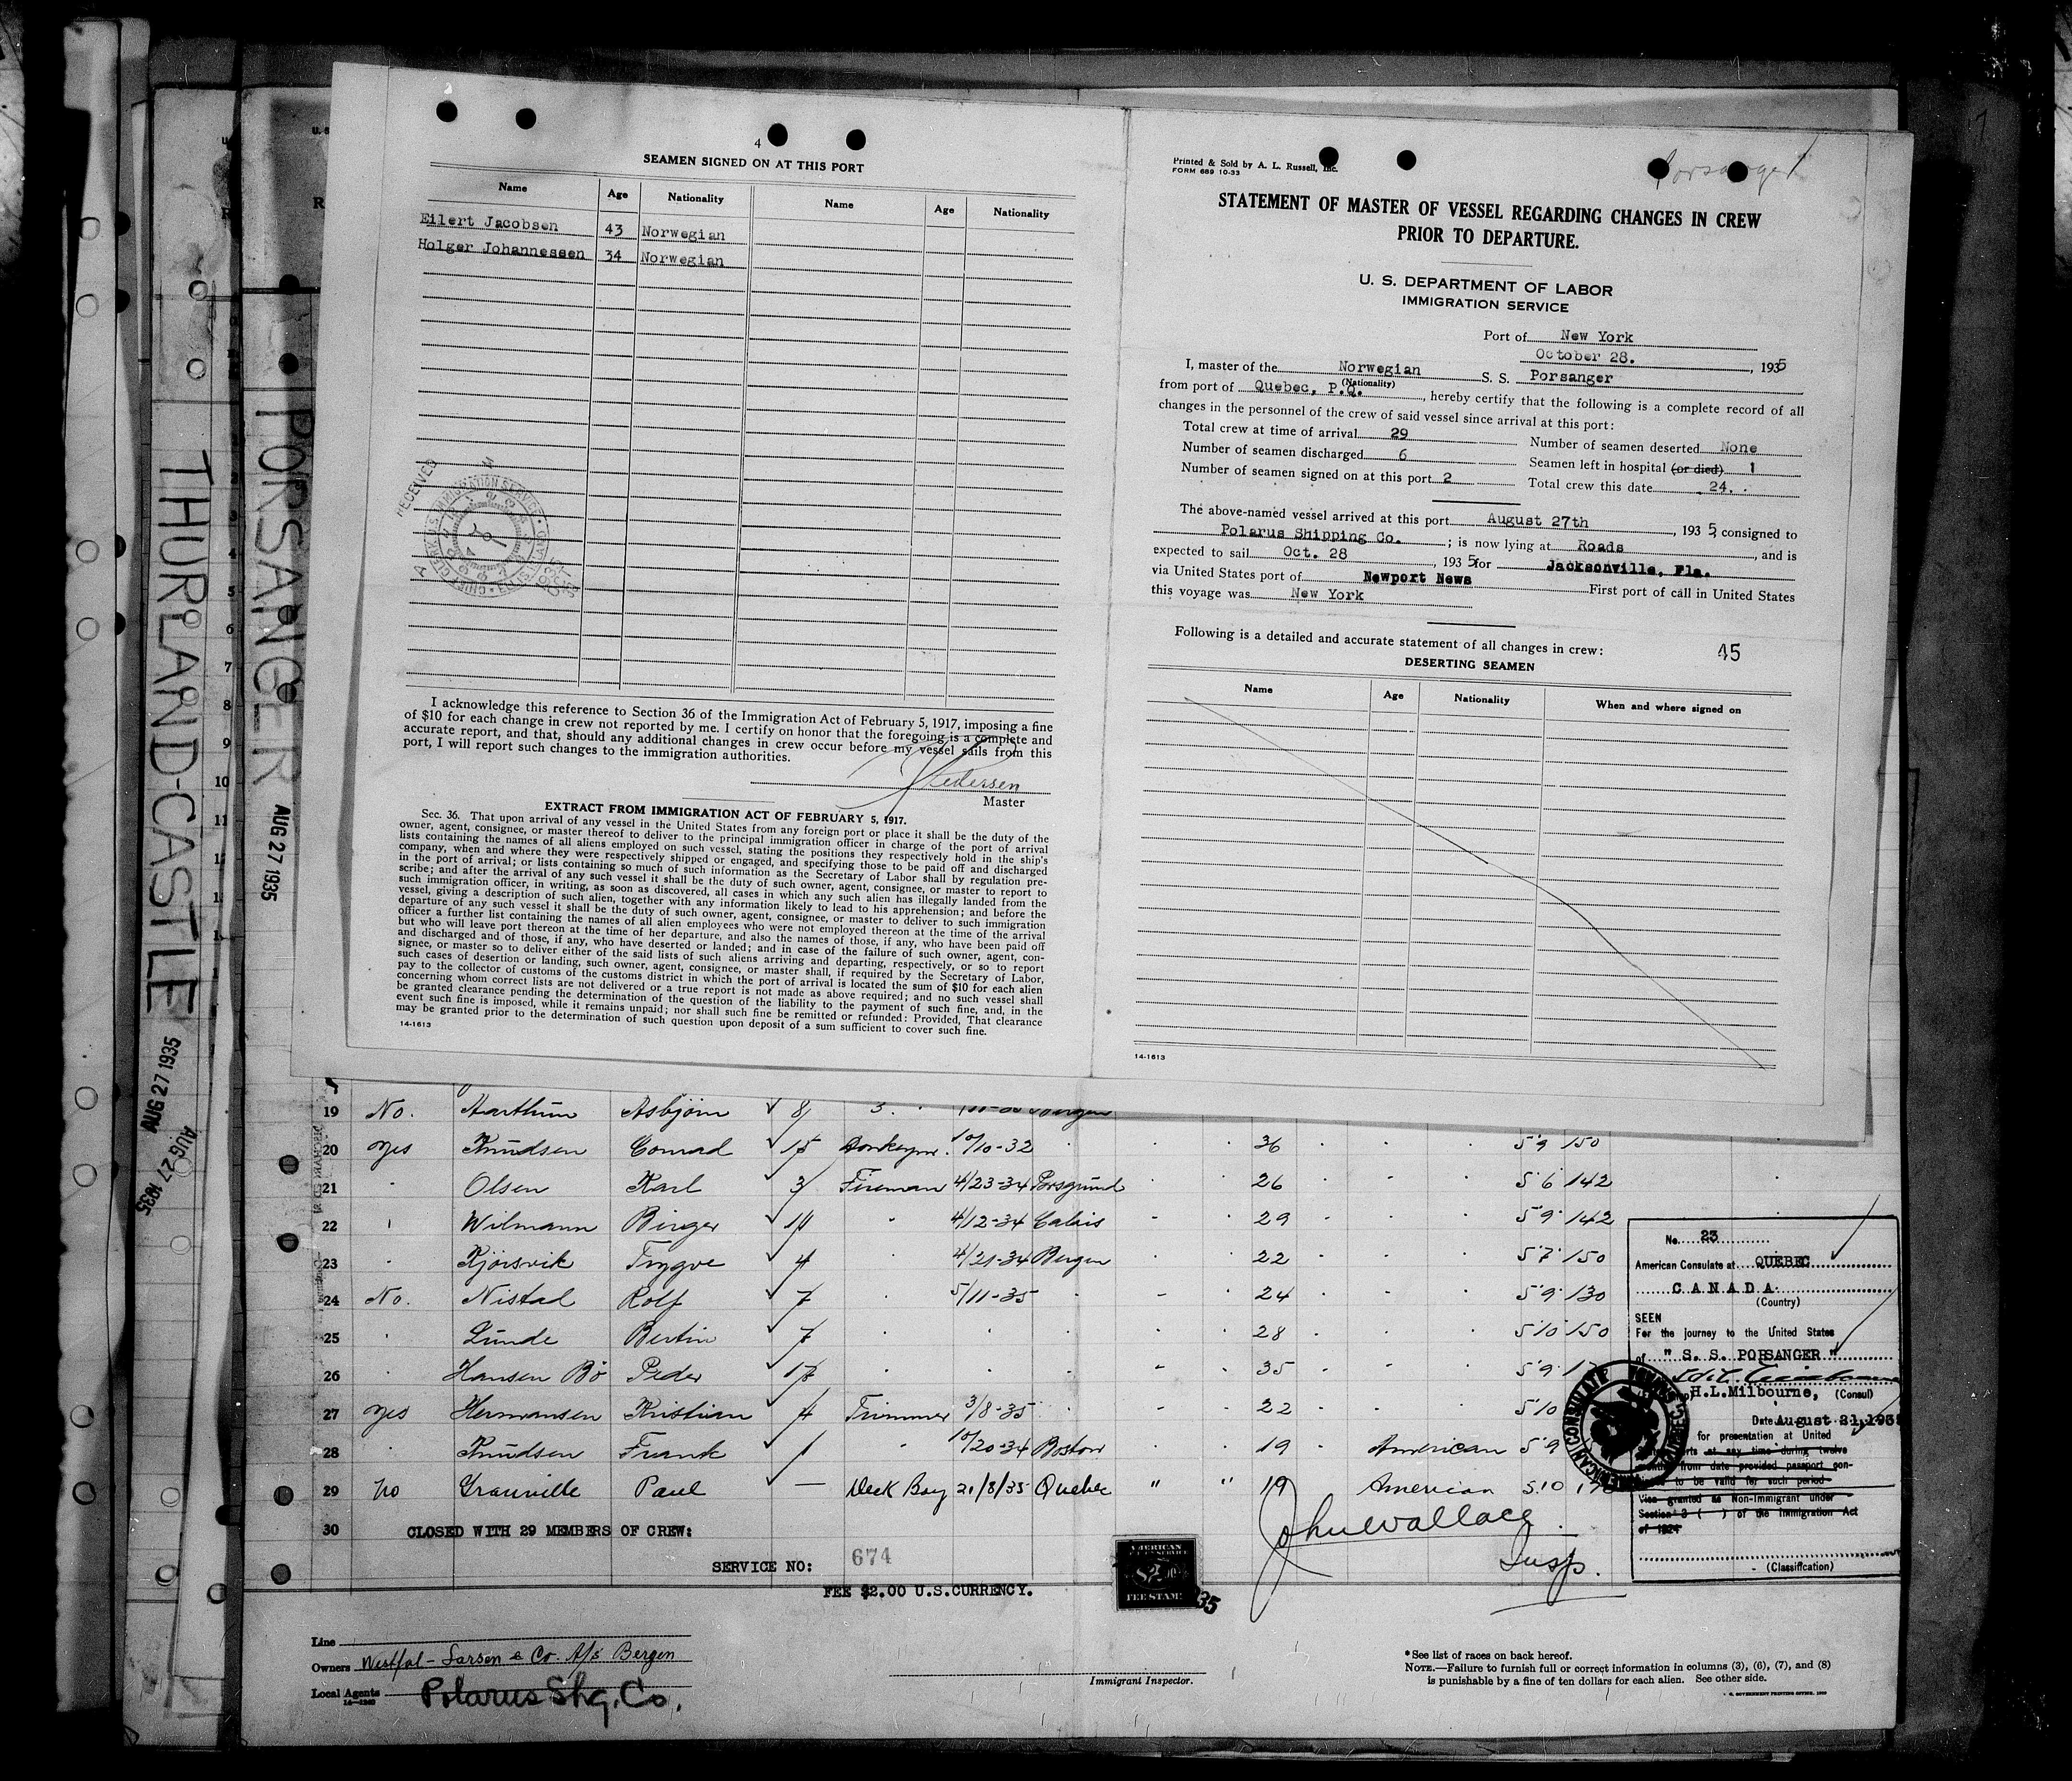 THURLAND-CASTLE
AUG 27 1935
AUG 27 1935
PORSANGER
AUG 27 1935
4
SEAMEN SIGNED ON AT THIS PORT
Name Age Nationality Name Age Nationality
Eilert Jacobsen 43 Norwegian
Holger Johannessen 34 Norwegian
RECEIVED
I acknowledge this reference to Section 36 of the Immigration Act of February 5, 1917, imposing a fine
of $10 for each change in crew not reported by me. I certify on honor that the foregoing is a complete and
accurate report, and that, should any additional changes in crew occur before my vessel sails from this
port, I will report such changes to the immigration authorities.
Pedersen
Master
EXTRACT FROM IMMIGRATION ACT OF FEBRUARY 5, 1917.
Sec. 36. That upon arrival of any vessel in the United States from any foreign port or place it shall be the duty of the
owner, agent, consignee, or master thereof to deliver to the principal immigration officer in charge of the port of arrival
lists containing the names of all aliens employed on such vessel, stating the positions they respectively hold in the ship's
company, when and where they were respectively shipped or engaged, and specifying those to be paid off and discharged
in the port of arrival; or lists containing so much of such information as the Secretary of Labor shall by regulation pre-
scribe; and after the arrival of any such vessel it shall be the duty of such owner, agent, consignee, or master to report to
such immigration officer, in writing, as soon as discovered, all cases in which any such alien has illegally landed from the
vessel, giving a description of such alien, together with any information likely to lead to his apprehension; and before the
departure of any such vessel it shall be the duty of such owner, agent, consignee, or master to deliver to such immigration
officer a further list containing the names of all alien employees who were not employed thereon at the time of the arrival
but who will leave port thereon at the time of her departure, and also the names of those, if any, who have been paid off
and discharged and of those, if any, who have deserted or landed; and in case of the failure of such owner, agent, con-
signee, or master so to deliver either of the said lists of such aliens arriving and departing, respectively, or so to report
such cases of desertion or landing, such owner, agent, consignee, or master shall, if required by the Secretary of Labor,
pay to the collector of customs of the customs district in which the port of arrival is located the sum of $10 for each alien
concerning whom correct lists are not delivered or a true report is not made as above required; and no such vessel shall
be granted clearance pending the determination of the question of the liability to the payment of such fine, and, in the
event such fine is imposed, while it remains unpaid; nor shall such fine be remitted or refunded: Provided, That clearance
may be granted prior to the determination of such question upon deposit of a sum sufficient to cover such fine.
14-1613
Printed & Sold by A. L. Russell, Inc.
FORM 689 10-33
Porsanger
STATEMENT OF MASTER OF VESSEL REGARDING CHANGES IN CREW
PRIOR TO DEPARTURE.
U. S. DEPARTMENT OF LABOR
IMMIGRATION SERVICE
Port of New York
October 28. , 1935
I, master of the Norwegian S. S. Porsanger
(Nationality)
from port of Quebec, P.Q. , hereby certify that the following is a complete record of all
changes in the personnel of the crew of said vessel since arrival at this port:
Total crew at time of arrival 29 Number of seamen deserted None
Number of seamen discharged 6 Seamen left in hospital (or died) 1
Number of seamen signed on at this port 2 Total crew this date 24.
The above-named vessel arrived at this port August 27th , 1935, consigned to
Polarus Shipping Co. ; is now lying at Roads , and is
expected to sail Oct. 28 , 1935 for Jacksonville, Fla.
via United States port of Newport News First port of call in United States
this voyage was New York
Following is a detailed and accurate statement of all changes in crew: 45
DESERTING SEAMEN
Name Age Nationality When and where signed on
14-1613
19 No. Aarthun Asbjörn 8 3.
20 Yes Knudsen Conrad 15 Donkeym. 10/10-32 36 5 9 150
21 Olsen Karl 3 Fireman 4/23-34 Porsgrund 26 5 6 142
22 Wilmann Birger 14 4/12-34 Calais 29 5 9 142
23 Kjörsvik Trygve 4 4/21-34 Bergen 22 5 7 150
24 No. Nistad Rolf 7 5/11-35 24 5 9 130
25 Lunde Bertin 7 28 5 10 150
26 Hansen Bö Peder 17 35 5 9
27 Yes Hermansen Kristian 4 Trimmer 3/8-35 22 5 10
28 Knudsen Frank 1 10/20-34 Boston 19 American 5 9
29 No Granville Paul — Deck Boy 21/8/35 Quebec " " 19 American 5.10
30 CLOSED WITH 29 MEMBERS OF CREW:
SERVICE NO: 674
FEE $2.00 U.S.CURRENCY.
AMERICAN
$2.00
FEE STAMP
35
John Wallace
Insp.
No. 23
American Consulate at QUEBEC
CANADA
(Country)
SEEN
For the journey to the United States
of " S. S. PORSANGER "
H.L.Milbourne, (Consul)
Date August 21,193
for presentation at United
at any time during twelve
from date provided passport con-
to be valid for such period
Visa granted as Non-Immigrant under
Section 3 ( ) of the Immigration Act
of 1924
(Classification)
AMERICAN CONSULATE
Line
Owners Westfal-Larsen & Co A/S Bergen
Local Agents Polarus Shg. Co.
14-1240
Immigrant Inspector.
*See list of races on back hereof.
NOTE.—Failure to furnish full or correct information in columns (3), (6), (7), and (8)
is punishable by a fine of ten dollars for each alien. See other side.